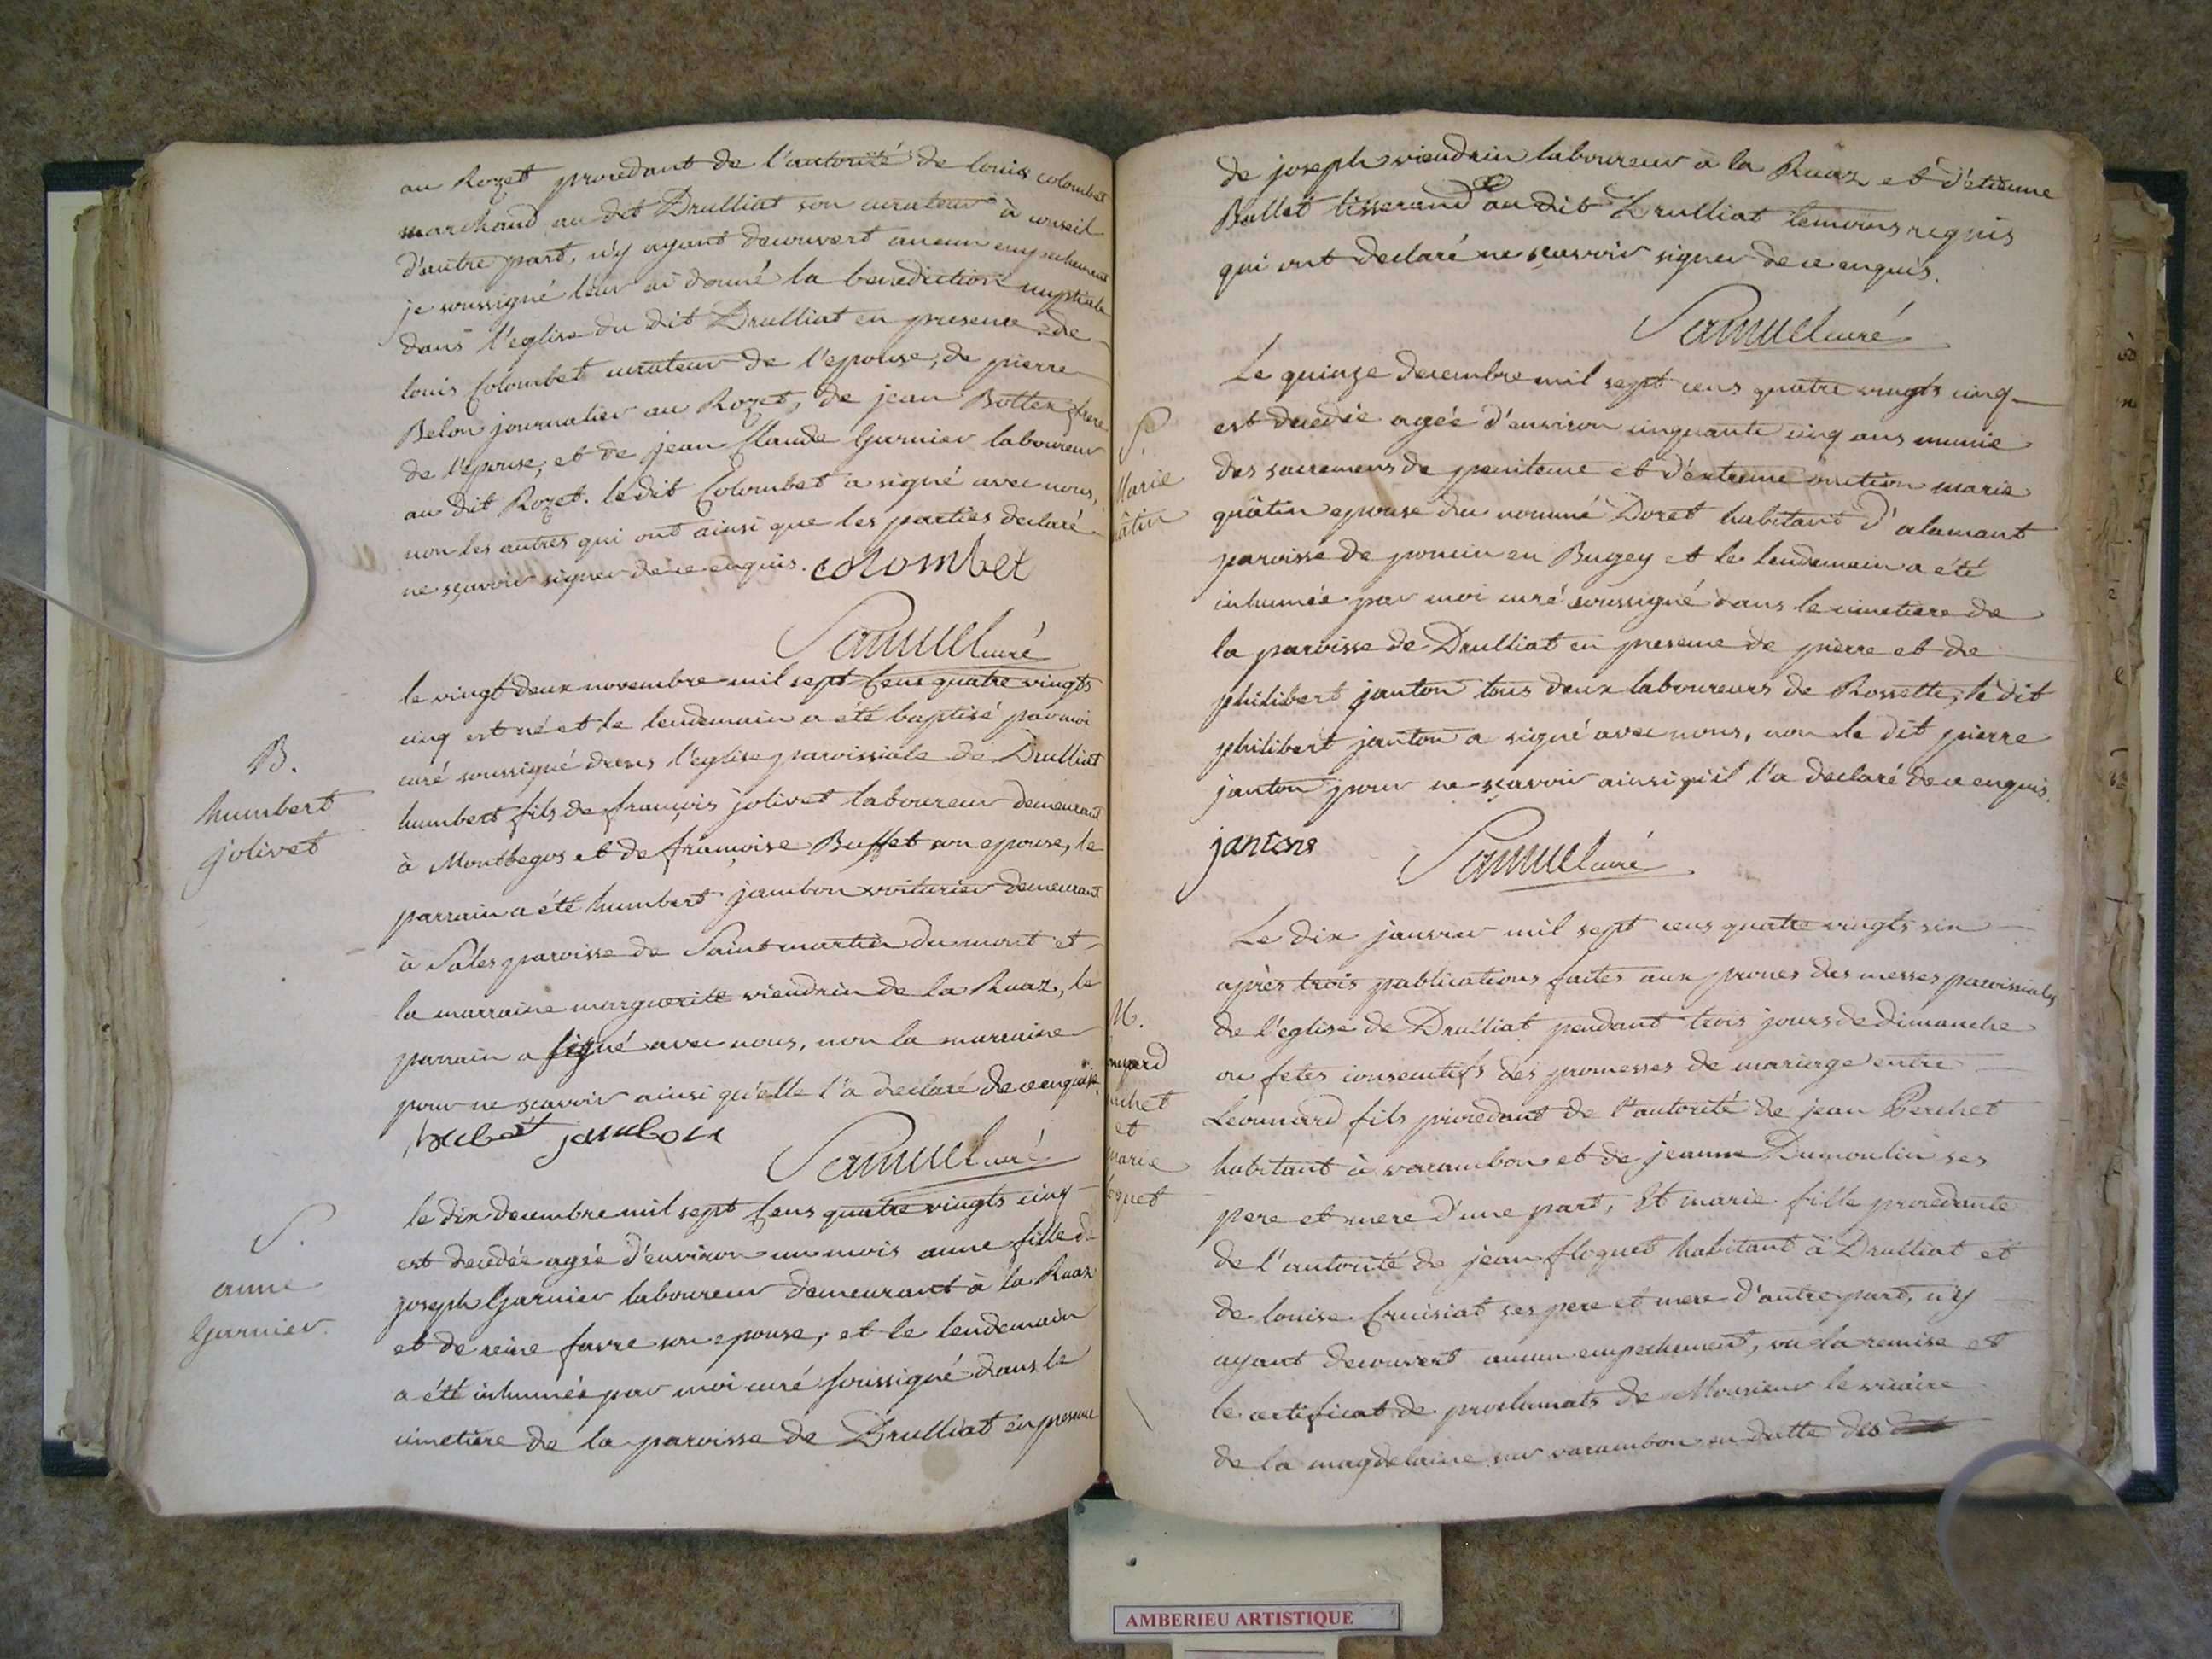 au Rozet procedant de l'autorité de louis colombet
marchand au dit Drulliat son curateur à conseil
d'autre part, n'y ayant decouvert aucun empechement
je soussigné leur ai donné la benediction nuptiale
dans l'eglise du dit Drulliat en presence de
louis Colombet curateur de l'epouse, de pierre
Belon journalier au Rozet, de jean Bottex frere
de l'epouse, et de jean Claude Garnier laboureur
au dit Rozet. le dit Colombet a signé avec nous,
non les autres qui ont ainsi que les parties declaré
ne sçavoir signer de ce enquis. colombet
Samuel curé
le vingt deux novembre mil sept Cens quatre vingts
cinq est né et le lendemain a été baptisé par moi
curé soussigné dans l'eglise paroissiale de Drulliat
B.
humbert
jolivet
humbert fils de françois jolivet laboureur demeurant
à Montbegos et de françoise Buffet son epouse, le
parrain a été humbert jambon voiturier demeurant
à Sales paroisse de Saint martin du mont et
la marraine marguerite viendrin de la Ruaz, le
parrain a signé avec nous, non la marraine
pour ne sçavoir ainsi qu'elle l'a declaré de ce enquise.
jambon
Samuel curé
S.
anne
Garnier
le dix decembre mil sept Cens quatre vingts cinq
est decedée agée d'environ un mois anne fille de
joseph Garnier laboureur demeurant à la Ruaz
et de reine favre son epouse, et le lendemain
a été inhumée par moi curé soussigné dans le
cimetiere de la paroisse de Drulliat en presence
de joseph viendrin laboureur à la Ruaz et d'étienne
Ballet tisserand au dit Drulliat temoins requis
qui ont declaré ne sçavoir signer de ce enquis.
Samuel curé
S.
Marie
uâtin
Le quinze decembre mil sept cens quatre vingts cinq
est decedée agée d'environ cinquante cinq ans munie
des sacremens de penitence et d'extreme onction marie
quâtin epouse du nommé Doret habitant d'alamant
paroisse de poncin en Bugey et le lendemain a été
inhumée par moi curé soussigné dans le cimetiere de
la paroisse de Drulliat en presence de pierre et de
philibert janton tous deux laboureurs de Rossette, le dit
philibert janton a signé avec nous, non le dit pierre
janton pour ne sçavoir ainsi qu'il l'a declaré de ce enquis.
jantons
Samuel curé
M.
nard
chet
et
marie
oquet
Le dix janvier mil sept cens quatre vingts six
après trois publications faites aux prones des messes paroissiales
de l'eglise de Drulliat pendant trois jours de dimanche
ou fetes consecutifs des promesses de mariage entre
Leonnard fils procedant de l'autorité de jean Perchet
habitant à varambon et de jeanne Dumoulin ses
pere et mere d'une part, Et marie fille procedante
de l'autorité de jean floquet habitant à Drulliat et
de louise Cruisiat ses pere et mere d'autre part, n'y
ayant decouvert aucun empechement, vu la remise et
le certificat de proclamats de Monsieur le vicaire
de la magdelaine sur varambon en datte des
AMBERIEU ARTISTIQUE